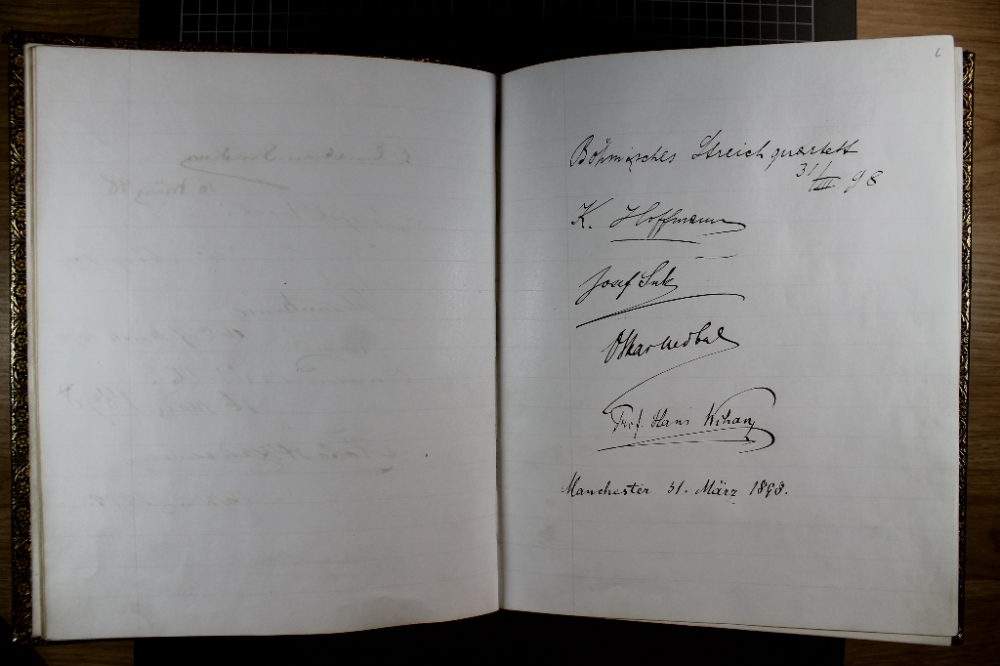 6
Böhmisches Streichquartett
31/III 98
K. Hoffmann
Josef Suk
Oskar Nedbal
Prof. Hans Wihan
Manchester 31. März 1898.